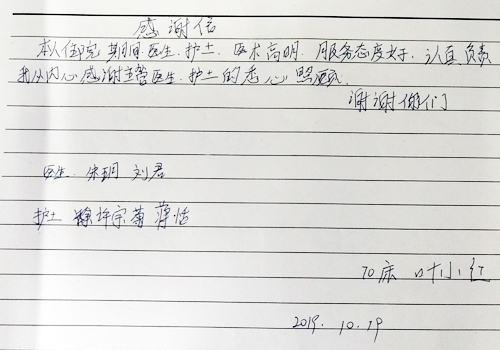 感谢信
本人住院期间医生、护士、医术高明、服务态度好、认真负责
我从内心感谢主管医生、护士的悉心照顾
谢谢你们
医生 朱玥 刘君
护士 宗菊 薄恬
70床 叶小红
2019.10.19